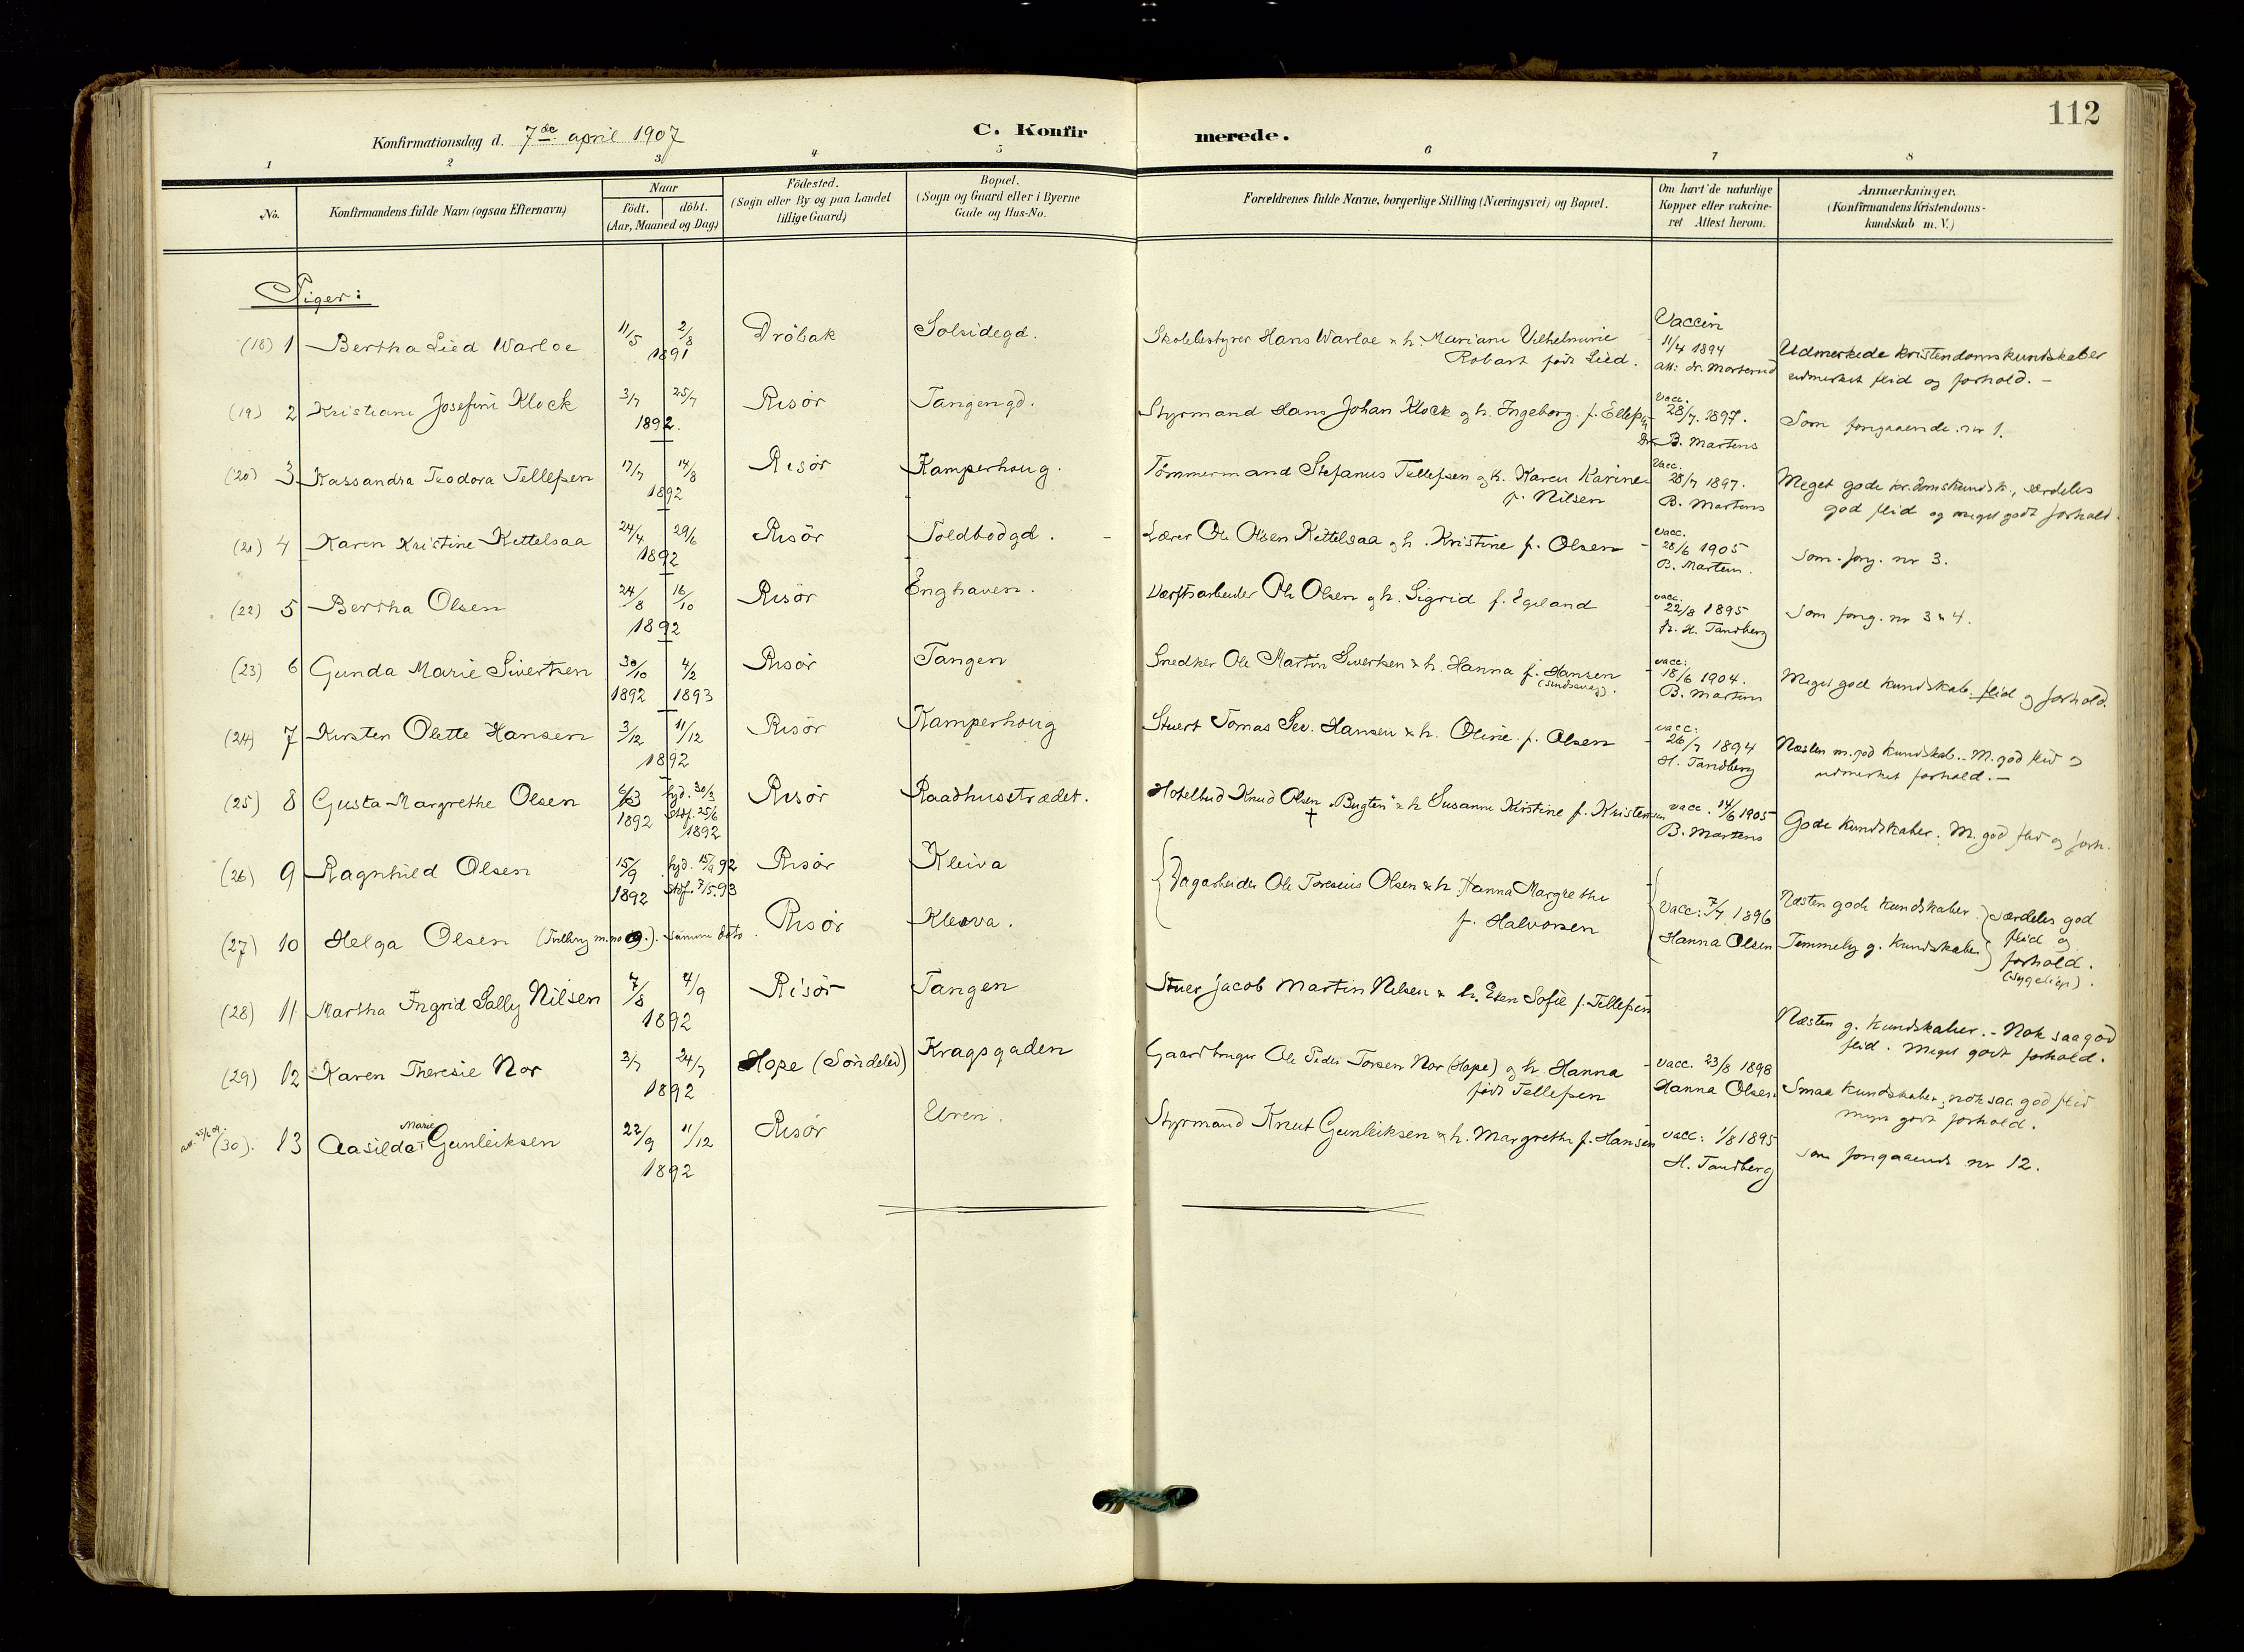 112
Konfirmationsdag d. 7de april 1907 C. Konfirmerede.
1 2 3 4 5 6 7 8
No. Konfirmandens fulde Navn (ogsaa Efternavn) Naar födt. döbt. (Aar, Maaned og Dag) Födested. (Sogn eller By og paa Landet tillige Gaard) Bopæl. (Sogn og Gaard eller i Byerne Gade og Hus-No. Forældrenes fulde Navne, borgerlige Stilling (Næringsvei) og Bopæl. Om havt de naturlige Kopper eller vakcineret Attest herom. Anmærkninger. (Konfirmandens Kristendomskundskab m. V.)
Piger:
(18) 1 Bertha Lied Warloe 11/5 2/8 1891 Dröbak Solsidegd. Skolebestyrer Hans Warloe & h. Mariane Vilhelmine
Robart født Lied. Vaccin 11/4 1894 att: dr. Morterud Udmerkede kristendomskundskaber
udmerket flid og forhold. –
(19) 2 Kristiane Josefine Klock 3/7 25/7 1892. Risör Tangengd. Styrmand Hans Johan Klock og h. Ingeborg f. Ellefsen vacc. 28/7 1897. B. Martens Som forgaaende nr 1.
(20) 3 Kassandra Teodora Tellefsen 17/7 14/8 1892 Risör Kamperhoug. Tömmermand Stefanus Tellefsen og h. Karen Karine
f. Nilsen vacc. 28/7 1897. B. Martens Meget gode kr.domskundsk., særdeles
god flid og meget godt forhold.
(21) 4 Karen Kristine Kittelsaa 24/4 29/6 1892 Risör Toldbodgd. Lærer Ole Olsen Kittelsaa og h. Kristine f. Olsen vacc. 28/6 1905 B. Martens. Som forg. nr 3.
(22) 5 Bertha Olsen 24/8 16/10 1892 Risör Enghaven. Værftsarbeider Ole Olsen og h. Sigrid f. Egeland vacc. 22/8 1895 H. Tandberg Som forg. nr 3 & 4.
(23) 6 Gunda Marie Sivertsen 30/10 1892 4/2 1893 Risör Tangen Snedker Ole Martin Sivertsen & h. Hanna f. Hansen
vacc: 18/6 1904. B. Martens Meget god kundskab. flid og forhold.
(24) 7 Kirsten Olette Hansen 3/12 11/12 1892 Risör Kamperhoug Stuert Tomas Sev. Hansen & h. Oline f. Olsen vacc: 26/7 1894 H. Tandberg Næsten m. god kundskab. – M. god flid og
udmerket forhold. –
(25) 8 Gusta Margrethe Olsen 6/3 1892 hjd. 30/3 Stdf. 25/6 1892 Risör Raadhusstrædet. Hotelbud Knud Olsen † "Bugten" & h. Susanne Kirstine f. Kristensen vacc. 14/6 1905 B. Martens Gode kundskaber. M. god flid og forh.
(26) 9 Ragnhild Olsen 15/9 1892 hjd. 15/9 92 Stdf. 7/5.93 Risör Kleiva Dagarbeider Ole Toresius Olsen & h. Hanna Margrethe
f. Halvorsen vacc: 7/7 1896 Hanna Olsen Næsten gode kundskaber. særdeles god flid og forhold.
(27) 10 Helga Olsen (Tvilling m. no 9.). samme dato. Risör Kleiva. Temmelig g. kundskaber (sygelig).
(28) 11 Martha Ingrid Sally Nilsen 7/8 4/9 1892 Risör Tangen Stuer Jacob Martin Nilsen & h. Elen Sofie f. Tellefsen Næsten g. kundskaber. – Nok saa god
flid. Meget godt forhold.
(29) 12 Karen Theresie Nor 3/7 24/7 1892 Hope (Söndeled) Kragsgaden Gaardbruger Ole Peder Torsen Nor (Hope) og h. Hanna
født Tellefsen vacc. 23/8 1898 Hanna Olsen. Smaa kundskaber, nok saa god flid
meget godt forhold.
(30). 13 Aasilda Marie Gunleiksen 22/9 11/12 1892 Risör Uren. Styrmand Knut Gunleiksen & h. Margrethe f. Hansen vacc: 1/8 1895 H. Tandberg som forgaaende nr 12.